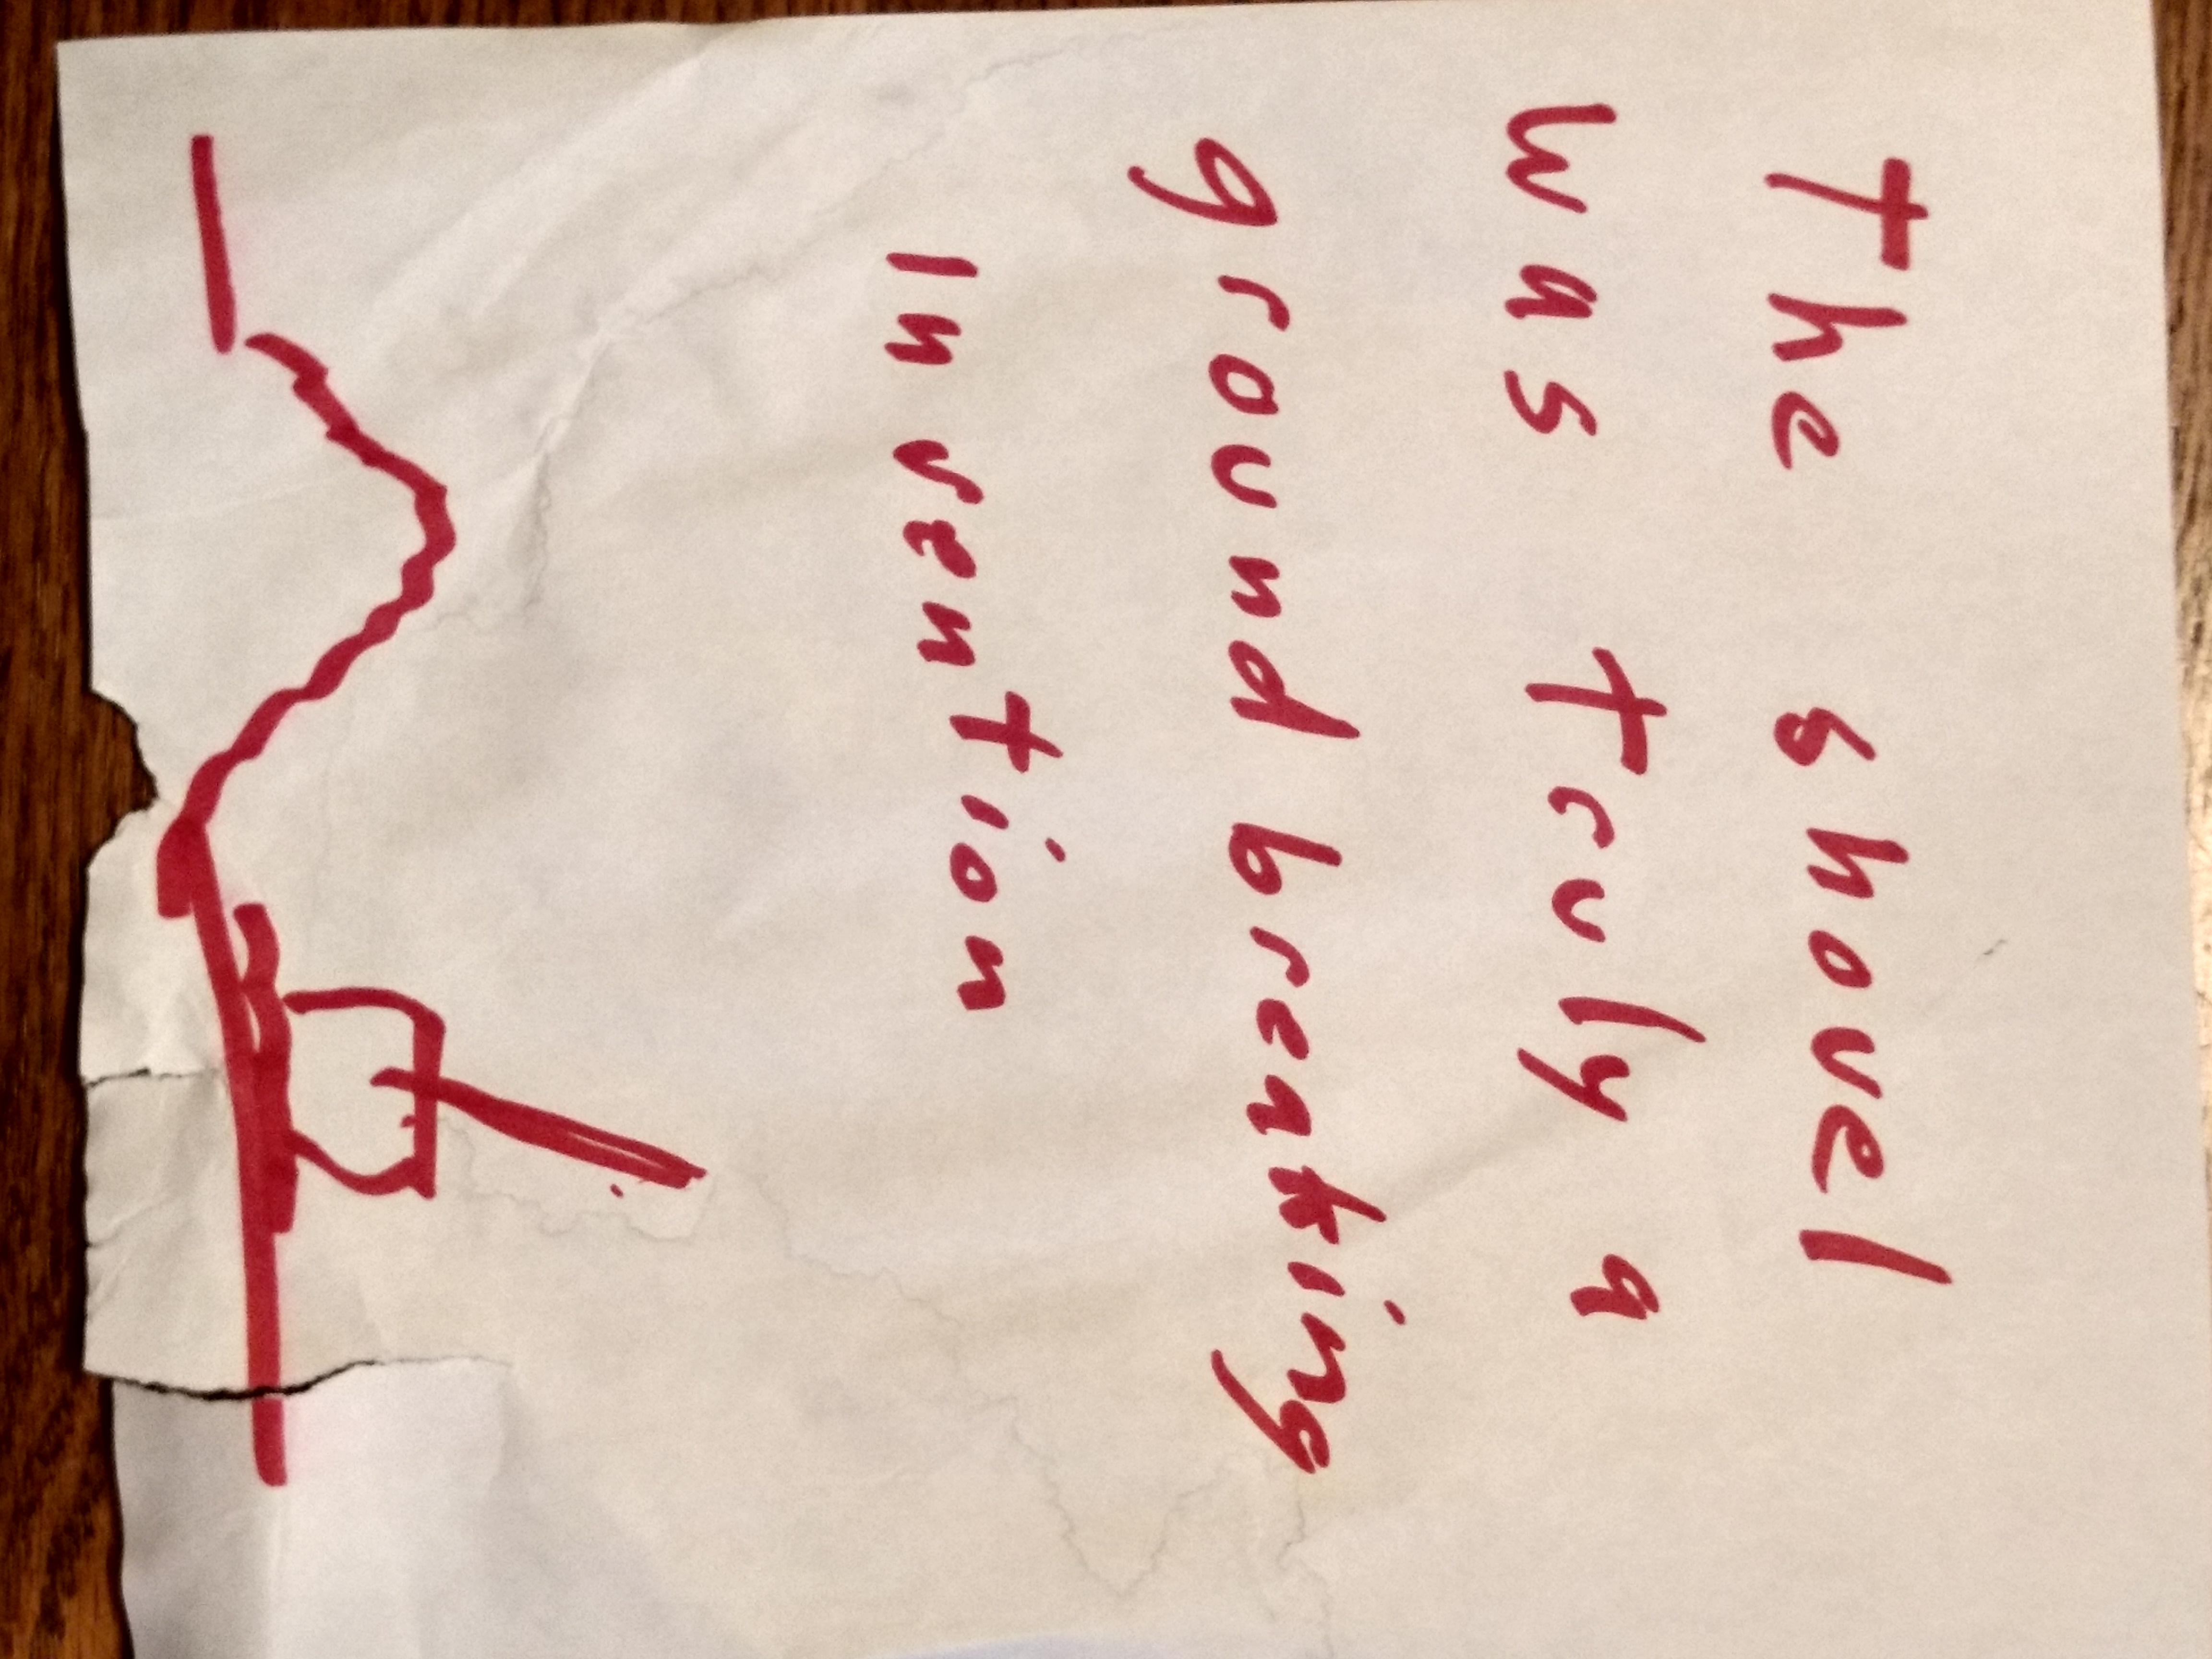 The shovel
was Truly a
ground breaking
Invention